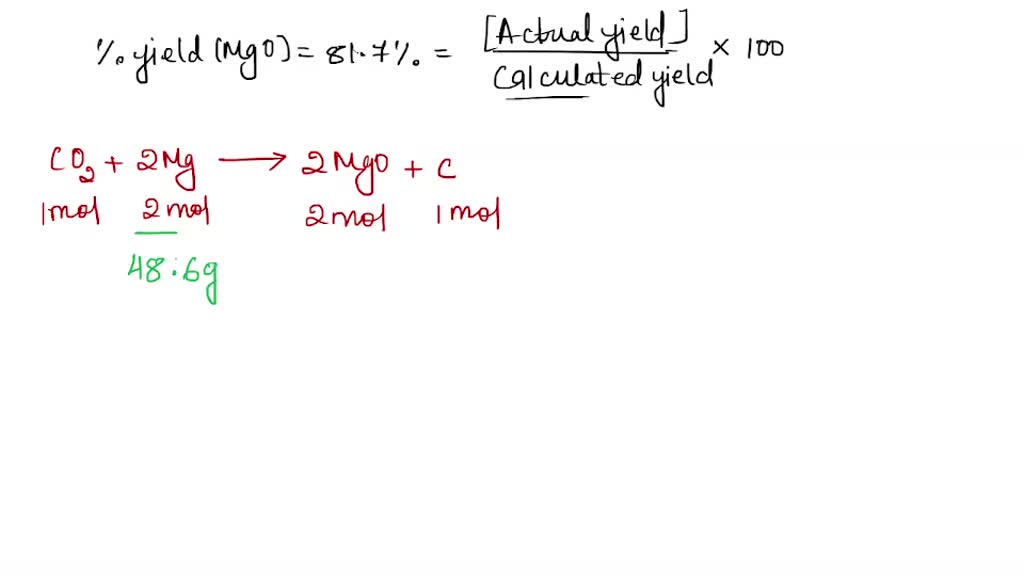 % yield (MgO) = 81.7% = [Actual yield] / Calculated yield × 100
CO2 + 2Mg → 2MgO + C
1mol 2mol 2mol 1mol
48.6g